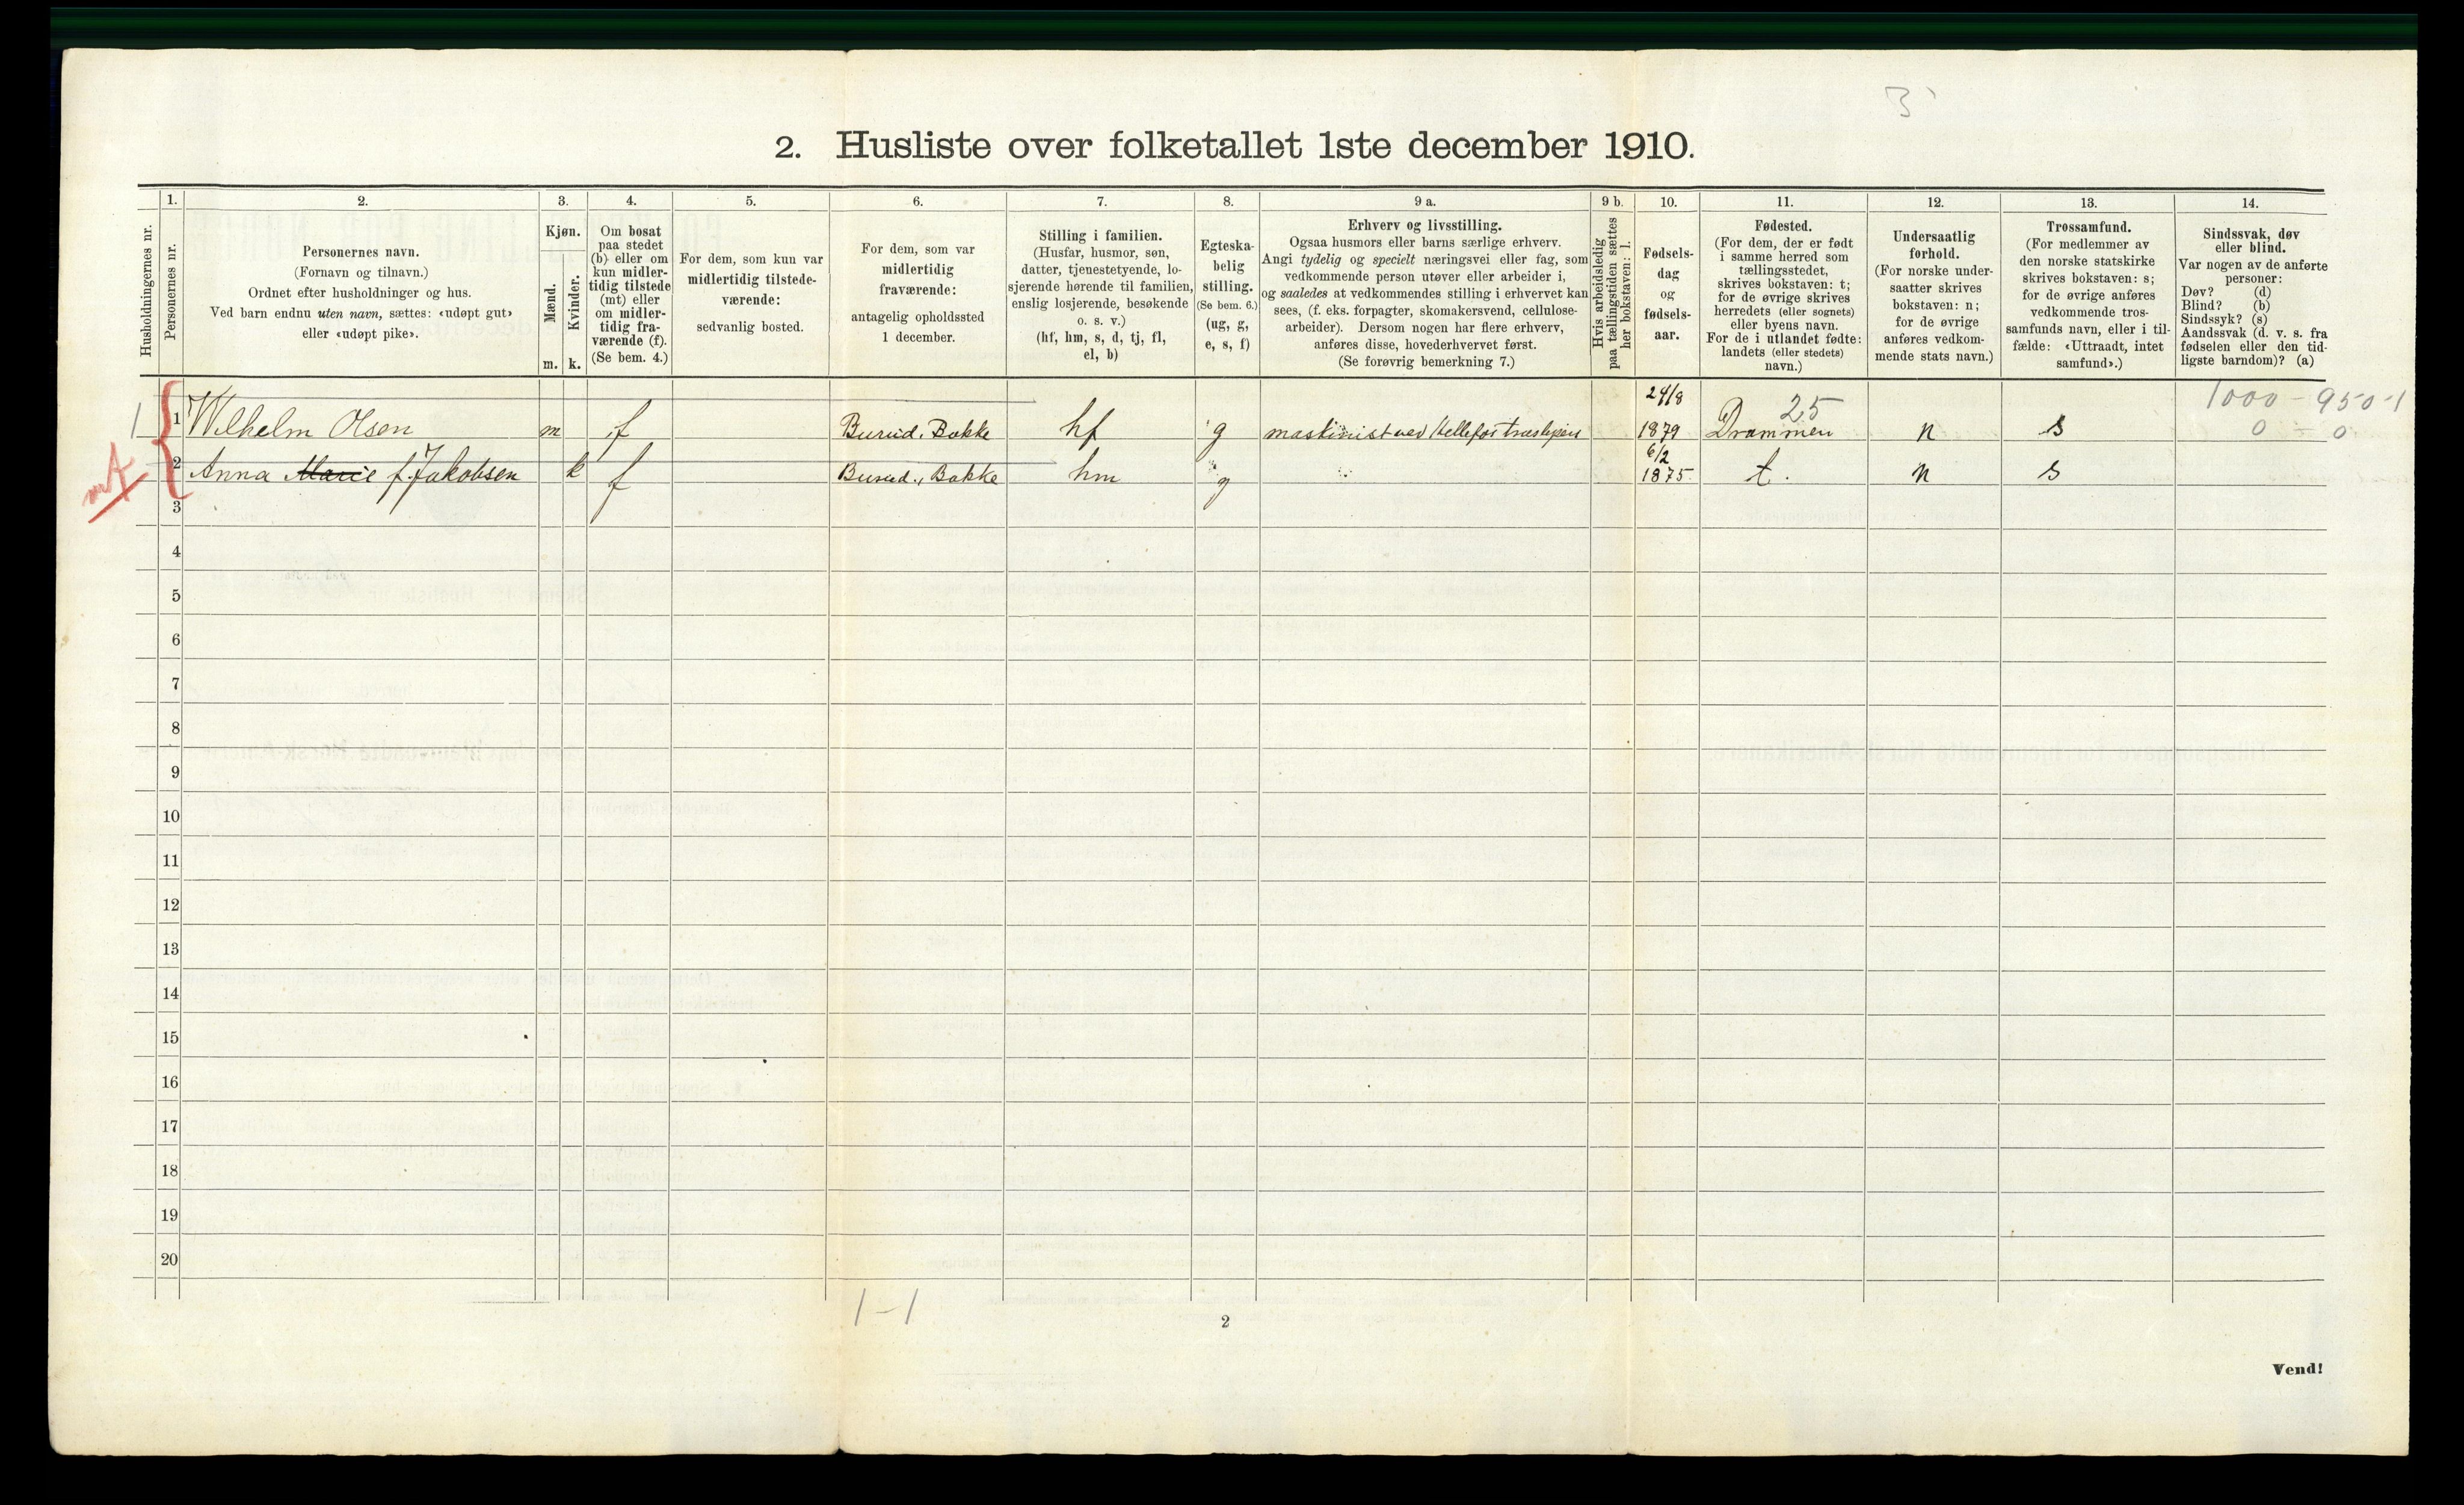 3
2. Husliste over folketallet 1ste december 1910.
Husholdningernes nr.
1.
Personernes nr.
2.
Personernes navn.
(Fornavn og tilnavn.)
Ordnet efter husholdninger og hus.
Ved barn endnu uten navn, sættes: «udøpt gut»
eller «udøpt pike».
3.
Kjøn.
Mænd.
Kvinder.
m. k.
4.
Om bosat
paa stedet
(b) eller om
kun midler-
tidig tilstede
(mt) eller
om midler-
tidig fra-
værende (f).
(Se bem. 4.)
5.
For dem, som kun var
midlertidig tilstede-
værende:
sedvanlig bosted.
6.
For dem, som var
midlertidig
fraværende:
antagelig opholdssted
1 december.
7.
Stilling i familien.
(Husfar, husmor, søn,
datter, tjenestetyende, lo-
sjerende hørende til familien,
enslig losjerende, besøkende
o. s. v.)
(hf, hm, s, d, tj, fl,
el, b)
8.
Egteska-
belig
stilling.
(Se bem. 6.)
(ug, g,
e, s, f)
9 a.
Erhverv og livsstilling.
Ogsaa husmors eller barns særlige erhverv.
Angi tydelig og specielt næringsvei eller fag, som
vedkommende person utøver eller arbeider i,
og saaledes at vedkommendes stilling i erhvervet kan
sees, (f. eks. forpagter, skomakersvend, cellulose-
arbeider). Dersom nogen har flere erhverv,
anføres disse, hovederhvervet først.
(Se forøvrig bemerkning 7.)
9 b.
Hvis arbeidsledig
paa tællingstiden sættes
her bokstaven: l.
10.
Fødsels-
dag
og
fødsels-
aar.
11.
Fødested.
(For dem, der er født
i samme herred som
tællingsstedet,
skrives bokstaven: t;
for de øvrige skrives
herredets (eller sognets)
eller byens navn.
For de i utlandet fødte:
landets (eller stedets)
navn.)
12.
Undersaatlig
forhold.
(For norske under-
saatter skrives
bokstaven: n;
for de øvrige
anføres vedkom-
mende stats navn.)
13.
Trossamfund.
(For medlemmer av
den norske statskirke
skrives bokstaven: s;
for de øvrige anføres
vedkommende tros-
samfunds navn, eller i til-
fælde: «Uttraadt, intet
samfund».)
14.
Sindssvak, døv
eller blind.
Var nogen av de anførte
personer:
Døv? (d)
Blind? (b)
Sindssyk? (s)
Aandssvak (d. v. s. fra
fødselen eller den tid-
ligste barndom)? (a)
1 1 Wilhelm Olsen m f Burud, Bakke hf g maskinist ved Hellefos træsliperi 24/8 1879 Drammen 25 n s 1000 - 950-1
0 - 0
2 Anna Marie f. Jakobsen k f Burud, Bakke hm g 6/2 1875. t. n s
3
4
5
6
7
8
9
10
11
12
13
14
15
16
17
18
19
20
1-1
2
Vend!